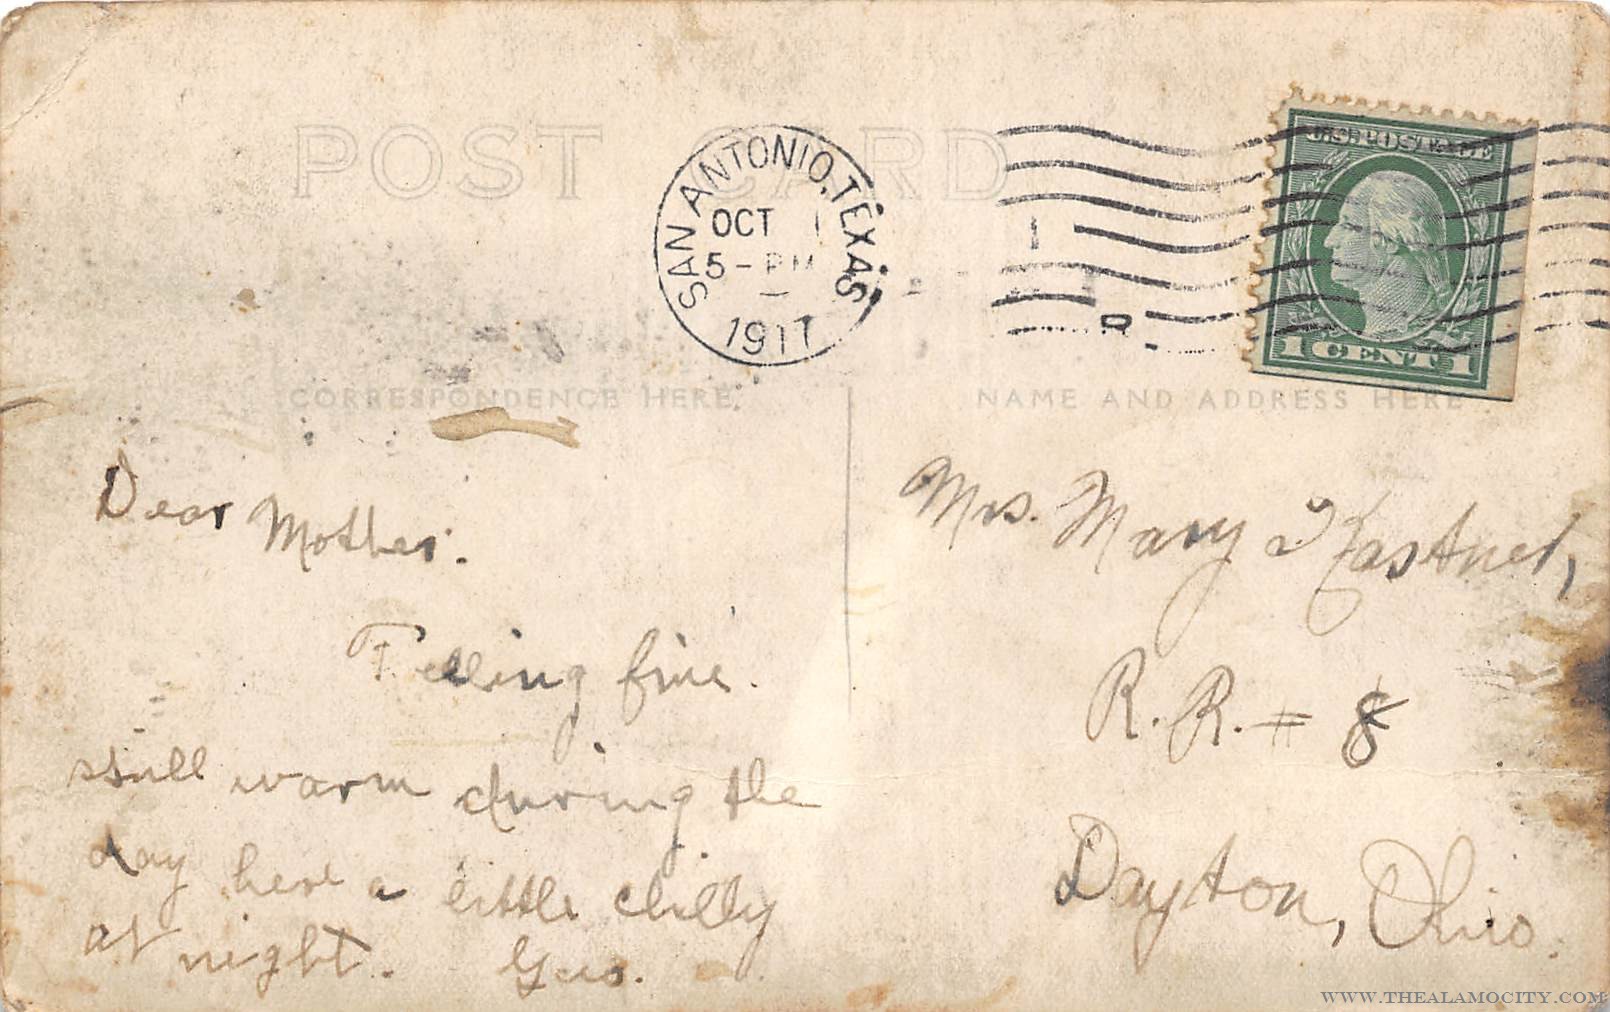 POST CARD
SAN ANTONIO, TEXAS
OCT 1
5-PM
1917
U.S. POSTAGE
1 CENT 1
CORRESPONDENCE HERE
NAME AND ADDRESS HERE
Dear Mother.
Feeling fine.
still warm during the
day here a little chilly
at night. Gus.
Mrs. Mary Kastner,
R. R. # 8
Dayton, Ohio.
WWW.THEALAMOCITY.COM